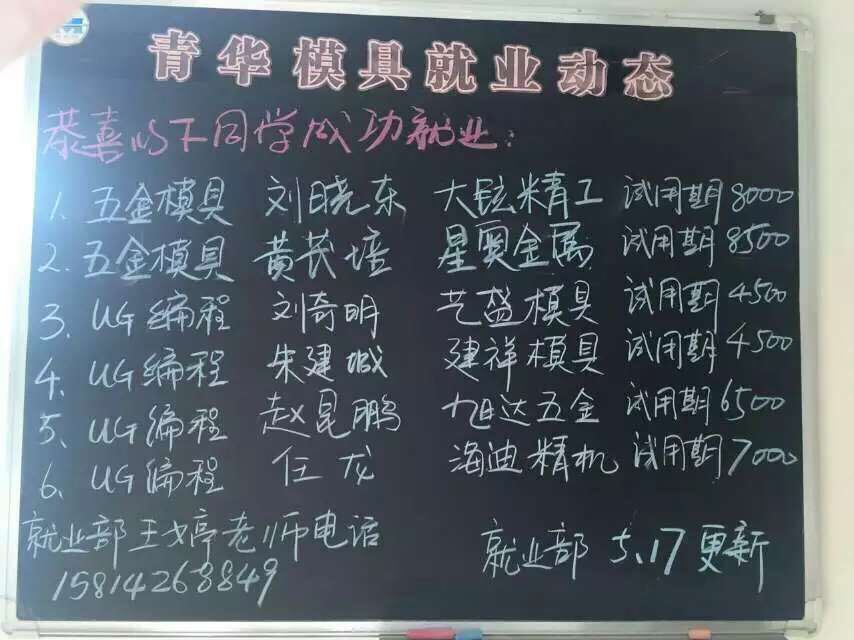 青华模具就业动态
恭喜以下同学成功就业:
1、五金模具 刘晓东 大铉精工 试用期8000
2、五金模具 黄茂培 星奥金属 试用期8500
3、UG编程 刘奇明 艺盛模具 试用期4500
4、UG编程 朱建城 建祥模具 试用期4500
5、UG编程 赵昆鹏 旭达五金 试用期6500
6、UG编程 任龙 海迪精机 试用期7000
就业部王婷老师电话
15814268849
就业部 5.17更新